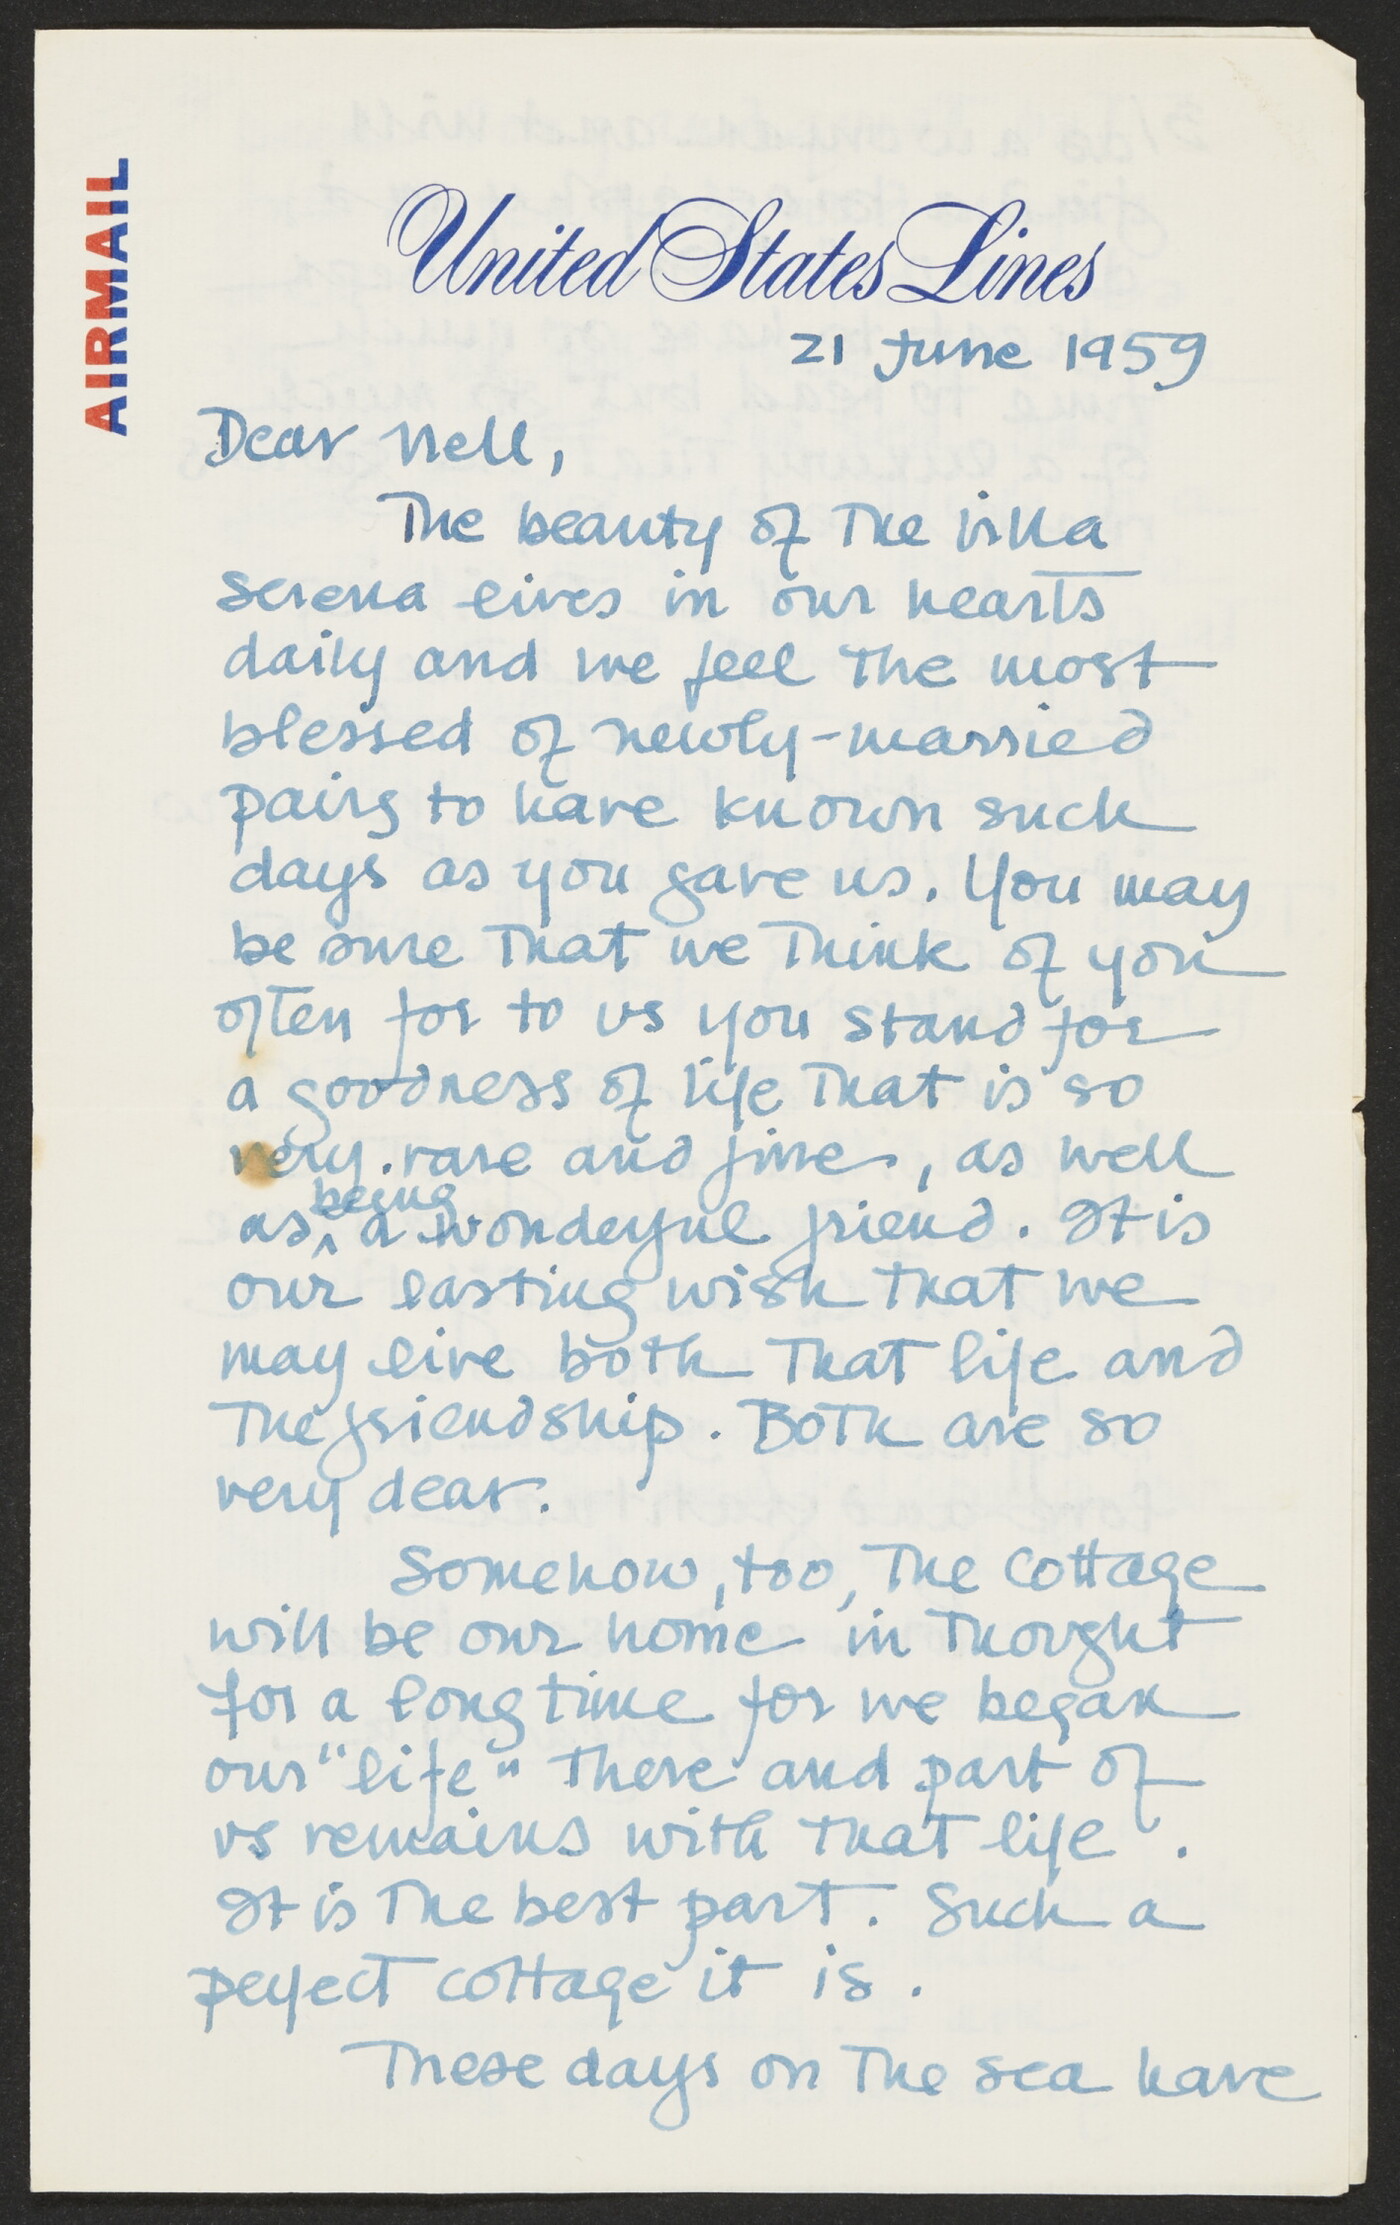 AIRMAIL
United States Lines
21 June 1959
Dear Nell,
The beauty of the Villa
Serena lives in our hearts
daily and we feel the most
blessed of newly-married
pairs to have known such
days as you gave us. You may
be sure that we think of you
often for to us you stand for
a goodness of life that is so
very rare and fine, as well
as being a wonderful friend. It is
our lasting wish that we
may live both that life and
the friendship. Both are so
very dear.
Somehow, too, the cottage
will be our home in thought
for a long time for we began
our "life" there and part of
us remains with that life.
It is the best part. Such a
perfect cottage it is.
These days on the sea have